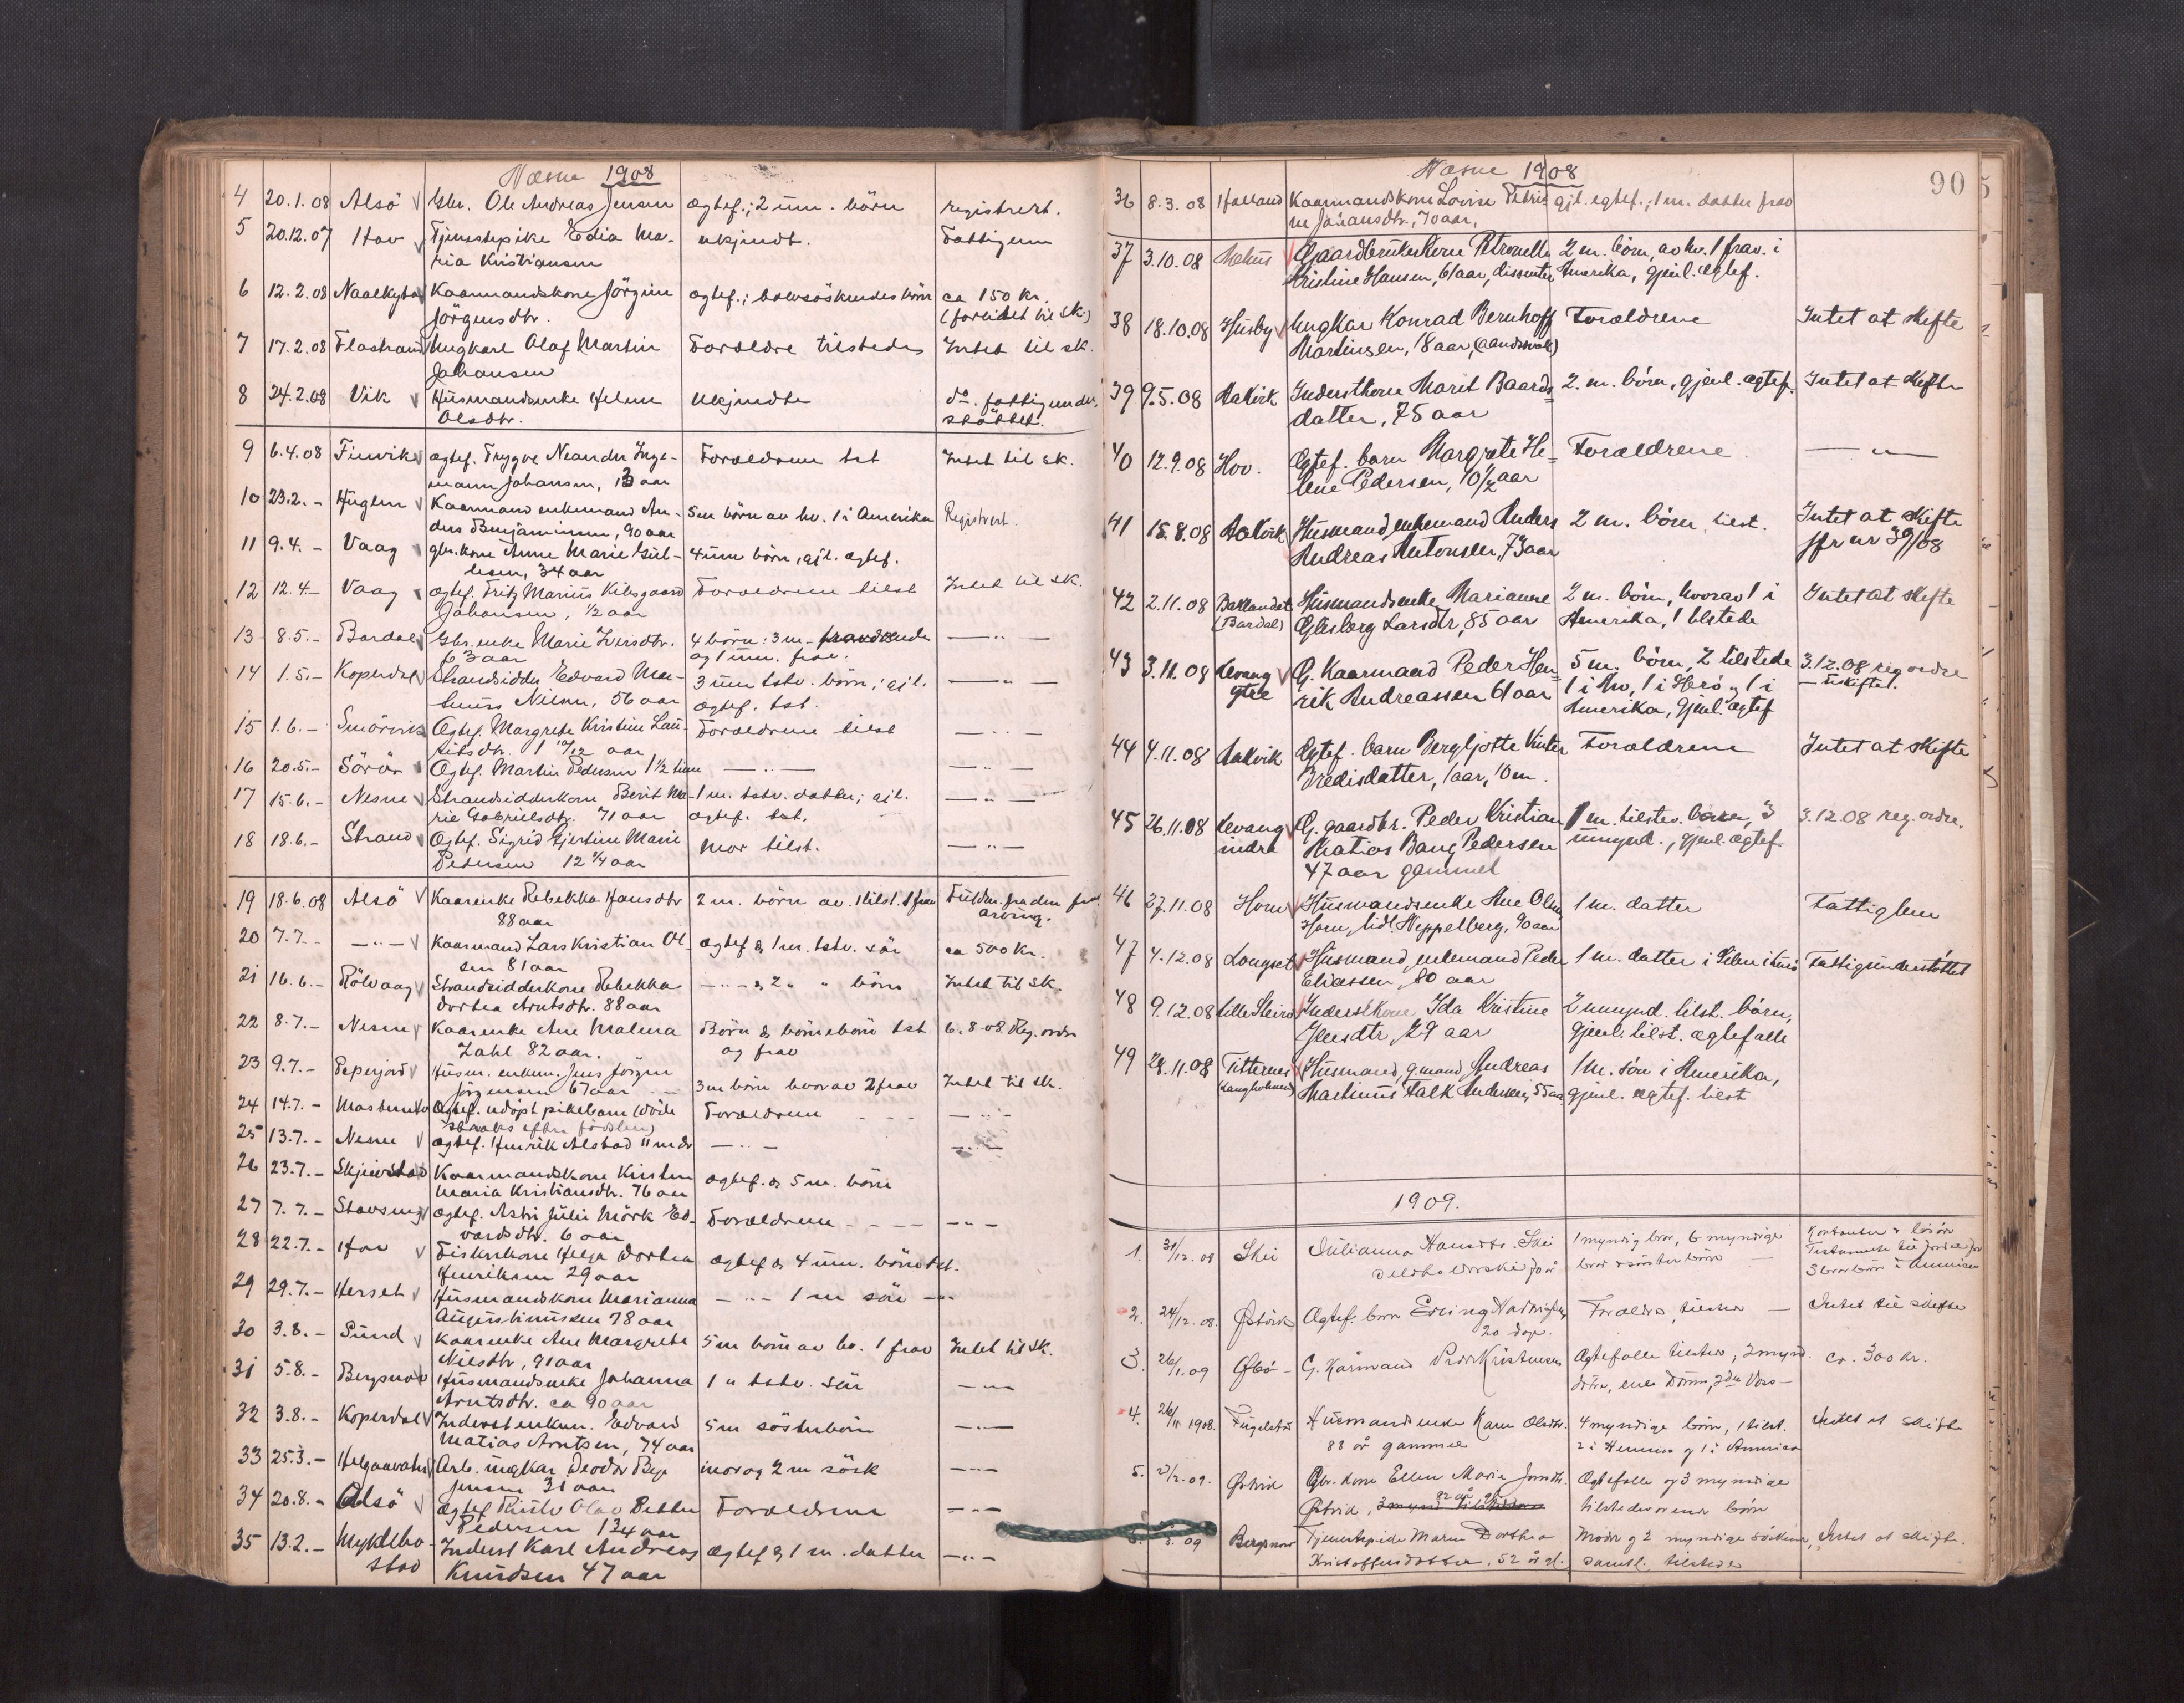 Nesne 1908
4 20.1.08 Alsö Gbr. Ole Andreas Jensen ægtef.; 2 um. börn registrert.
5 20.12.07 Hov Tjenestepike Edia Ma- ukjendt. Fattiglem
ria Kristiansen
6 12.2.08 Kaarmandskone Jörgine ægtef.; ca 150 Kr.
Jörgensdtr. til sk.)
7 17.2.08 Flostrand Ungkarl Olaf Martin Forældre tilstede Intet til sk.
Johansen
8 24.2.08 Vik Husmandsenke Helene Ukjendte do. fattigunder-
Olsdtr. støttet.
9 6.4.08 Finvik ægtef. Trygve Neander Inge- Forældrene tst Intet til sk.
mann Johansen, 13 aar
10 23.2. - Huglen Kaarmand enkemand An- 5 m börn av hv. 1 i Amerika Registrert.
ders Benjaminsen, 90 aar
11 9.4. - Vaag gbr. kone Anne Marie 4 um börn, gjl. ægtef.
34 aar
12 12.4 - Vaag ægtef. Fritz Marius Kibsgaard Forældrene tilst Intet til sk.
Johansen, 1/2 aar
13 8.5. - Bardal Gbr. enke Marie Iversdtr. 4 börn: 3 m - — " —
63 aar og 1 um. frav.
14 1.5. - Koperdal Strandsidder Edvard Ma- 3 um tstv. börn; gjl. — " —
Nilsen, 56 aar ægtef. tst.
15 1.6. - Smörvik Ægtef. Margrete Kristine Lau- Forældrene tilst — " —
ritsdtr. 1 10/12 aar
16 20.5. - Ægtef. Martin Pedersen 1 1/2 time — " — — " —
17 15.6. - Nesne Strandsidderkone Berit Ma- 1 m. tstv. datter; gjl. — " —
rie Gabrielsdtr. 71 aar ægtef. tst.
18 18.6. - Strand Ægtef. Sigrid Gjertine Marie Mor tilst. — " —
Pedersen 12 1/4 aar
19 18.6.08 Alsö Kaarenke Rebekka Hansdtr 2 m. börn av. 1 tilst. 1 frav
88 aar arving.
20 7.7. - — " — Kaarmand Lars Kristian Ol- ægtef & 1 m. tstv. sön ca 500 Kr.
sen 81 aar
21 16.6. - Rölvaag Strandsidderkone Rebekka — " — & 2 " " börn Intet til sk.
Dortea Arntsdtr. 88 aar
22 8.7. - Nesne Kaarenke Ane Malena Börn & börnebörn tst 6.8.08 Reg. ordre
Zahl 82 aar. og frav
23 9.7. - Husm. enkem. Jens Jörgen
Jörgensen 67 aar 3 m börn hvorav 2 frav Intet til sk.
24 14.7. - Ægtef. udöpt pikebarn (döde Forældrene — " —
straks efter födslen)
25 13.7. - Nesne ægtef. Henrik Alstad 11 mdr — " — — " —
26 23.7. - Kaarmandskone Kirsten ægtef. & 5 m. börn
Maria Kristiansdtr. 76 aar
27 7.7. - ægtef. Astri Julie Mörk Ed- Forældrene — " —
vardsdtr. 6 aar
28 22.7. - Hov Fiskerkone Helga Dortea ægtef & 4 um. börn tst.
Henriksen 29 aar
29 29.7. - Herset Husmandskone Marianna — " — 1 m sön — " —
Augustinussen 78 aar
30 3.8. - Sund Kaarenke Ane Margrete 5 m börn av hv. 1 frav Intet til sk.
Nilsdtr, 91 aar
31 5.8. - Bergsnov Husmandsenke Johanna 1 " tstv. sön — " —
Arntsdtr. ca 90 aar
32 3.8. - Koperdal Inderst enkem. Edvard 5 m søsterbörn — " —
Matias Arntsen, 74 aar
33 25.3. - Arb. ungkar Peodor mor og 2 m søsk — " —
Jensen 31 aar
34 20.8. - Alsö ægtef Olav Petter Forældrene — " —
Pedersen 1 3/4 aar
35 13.2. - Myklebo- Inderst Karl Andreas ægtef & 1 m. datter — " —
stad Knudsen 47 aar
Nesne 1908
90
36 8.3.08 Kaarmandskone Lovise Petri- gjl. egtef.; 1 m. datter frav
ne Johansdtr., 70 aar,
37 3.10.08 Gaardbrukerkone Petronelle 2 m. börn, av hv. 1 frav. i
Kristine Hansen, 61 aar, dissenter Amerika, gjenl. ægtef.
38 18.10.08 Husby Ungkar Konrad Bernhoff Forældrene Intet at skifte
Martinsen, 18 aar, (aandssvak)
39 9.5.08 Aakvik Inderstkone Marit Baards- 2. m. börn, gjenl. ægtef. Intet at skifte
datter, 75 aar
40 12.9.08 Hov. Ægtef. barn Margrete He- Forældrene — " —
lene Pedersen, 10 1/2 aar
41 15.8.08 Aakvik Husmand, enkemand Anders 2 m. börn, tilst. Intet at skifte
Andreas Antonsen, 73 aar jfr nr 39/08
42 2.11.08 Baklandet Husmandsenke Marianne 2 m. börn, hvorav 1 i Intet at skifte
(Bardal) Elisberg Larsdtr, 85 aar Amerika, 1 tilstede
43 3.11.08 Levang G. Kaarmand Peder Hen- 5 m. börn, 2 tilstede 3.12.08 reg. ordre
ytre rik Andreassen 61 aar 1 i Mo, 1 i Herö, 1 i
Amerika, gjenl. ægtef
44 4.11.08 Aakvik Ægtef. barn Bergljotte Forældrene Intet at skifte
Bredisdatter, 1 aar, 10 m.
45 26.11.08 Levang G. gaardbr. Peder Kristian 1 m. tilstev. 3 3.12.08 reg. ordre.
indre Matias Bang Pedersen umynd., gjenl. ægtef.
47 aar gammel
46 27.11.08 Horn Husmandsenke Ane 1 m. datter Fattiglem
Horn, tidl. Heppelberg, 90 aar
47 4.12.08 Longset Husmand, enkemand Peder 1 m. datter i Fattigunderstøttet
Eliassen, 80 aar
48 9.12.08 Inderstkone Ida Kristine 2 umynd. tilst. börn,
Jensdtr, 29 aar gjenl. tilst. ægtefælle
49 28.11.08 Titternes Husmand, g. mand Andreas 1 m. sön i Amerika,
(Langholmen) Martinus Falk Andersen, gjenl. ægtef. tilst
1909.
1. 31/12.08 Skei Julianna Hansdtr. Skei 1 myndig bror, 6 myndige
bror & søsterbörn
2. 24/12.08. Østvik Ægtef. barn Erling Forældre, tilstede — Intet til skifte
20 dage.
3. 26/1.09 Øbö - G. Kårmand Peder Kristensen Ægtefælle tilstede, 2 mynd. ca. 300 kr.
4. 26/11 1908. Husmandsenke Karen Olsdtr. 4 myndige börn, 1 tilst. Intet at skifte
88 år gammel 2 i Hemnes og 1 i Amerika
5. 2/2.09. Østvik Gbr. kone Ellen Marie Ægtefælle og 3 myndige
Østvik, 82 år gl. tilstedeværende börn
.09 Bergsnov Tjenestepike Maren Dorthea Moder og 2 myndige söskende, Intet at skifte.
Kristoffersdatter, 52 år gl. samtl. tilstede